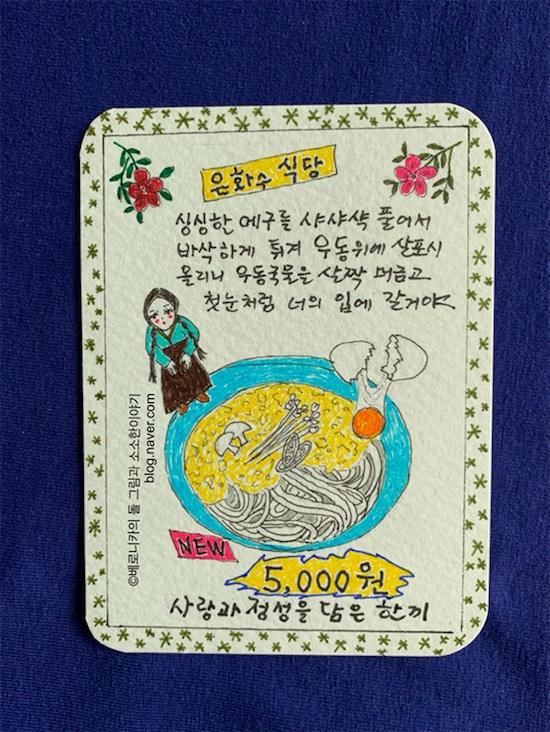 은화수 식당
싱싱한 에구를 샤샤샥 풀어서
바삭하게 튀겨 우동위에 살포시
올리니 우동국물은 살짝 머금고
첫눈처럼 너의 입에 갈거야
NEW
5,000원
사랑과 정성을 담은 한끼
©베로니카의 돌 그림과 소소한이야기
blog.naver.com